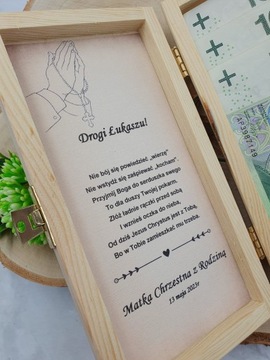 Drogi Łukaszu!
Nie bój się powiedzieć „wierzę"
Nie wstydź się zaśpiewać „kocham",
Przyjmij Boga do serduszka swego
To dla duszy Twojej pokarm.
Złóż ładnie rączki przed sobą
I wznieś oczka do nieba,
Od dziś Jezus Chrystus jest z Tobą,
Bo w Tobie zamieszkać mu trzeba.
Matka Chrzestna z Rodziną
13 maja 2023r